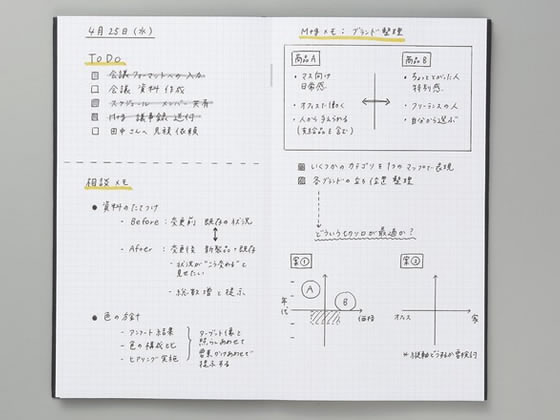 4月25日(水)
ToDo
会議フォーマットへの入力
会議 資料 作成
スケジュール メンバー 共有
Mtg 議事録 送付
田中さんへ 見積 依頼
相談メモ
資料のたてつけ
- Before : 変更前 既存の状況
- After : 変更後 新製品+既存
・状況が"こう変わる"と
見せたい
・総数増と提示
色の方針
- アンケート結果
- 色の構成比
- ヒアリング実施
ターゲット像と
照らしあわせて
提示する
Mtgメモ : ブランド整理
商品A
・マス向け
日常感
・オフィスで働く
・人から与えられる
(支給品を含む)
商品B
・ちょっととがった人
特別感
・フリーランスの人
・自分から選ぶ
いくつかのカテゴリを1つのマップで表現
各ブランドの立ち位置 整理
どういう切り口が最適か?
案①
年代
A
B
価格
案②
オフィス
家